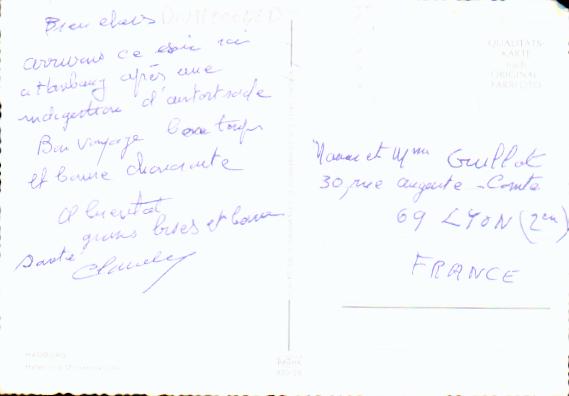 Bien chers
arrivons ce soir ici
a Hambourg après une
indigestion d'autostrade
Bon voyage beau temps
et bonne choucroute
A bientot
gros bises et bonne
santé
Claude
QUALITÄTS-
KARTE
nach
ORIGINAL
FARBFOTO
et Mme Guillot
30, rue auguste-Comte
69 LYON (2em)
FRANCE
HAMBURG